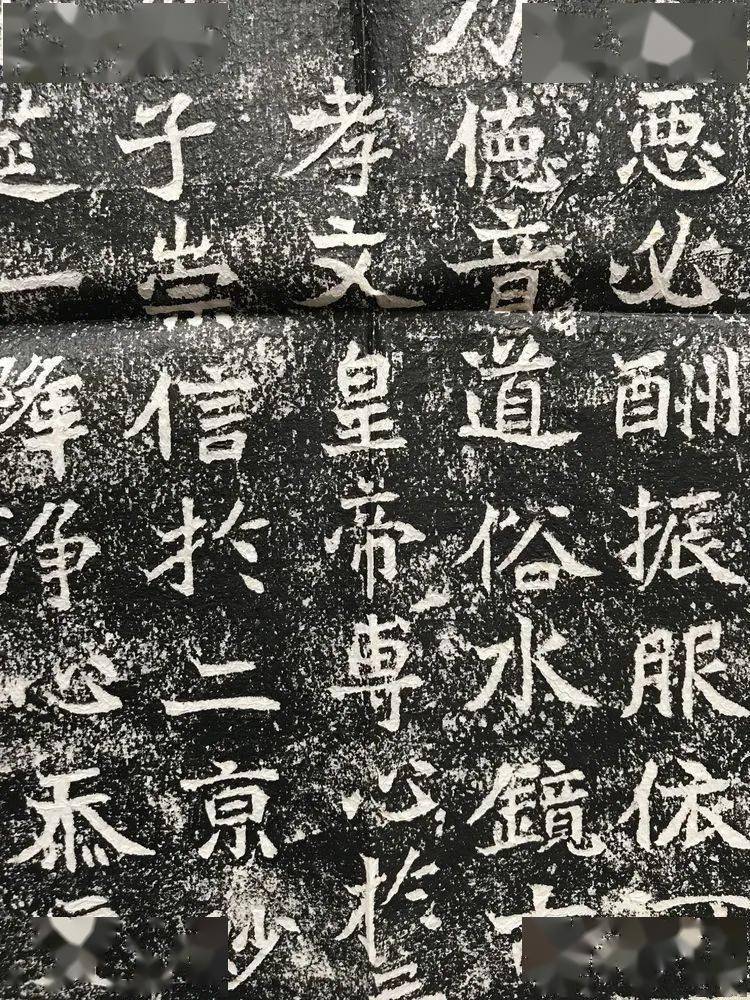 惡必酬振服依
德音道俗水鏡
孝文皇帝專心於
子崇信於二京
筵一降淨心忝